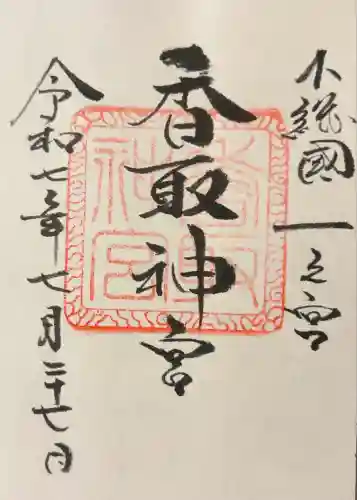 下総國一之宮
香取神宮
令和七年七月二十七日
香取神宮